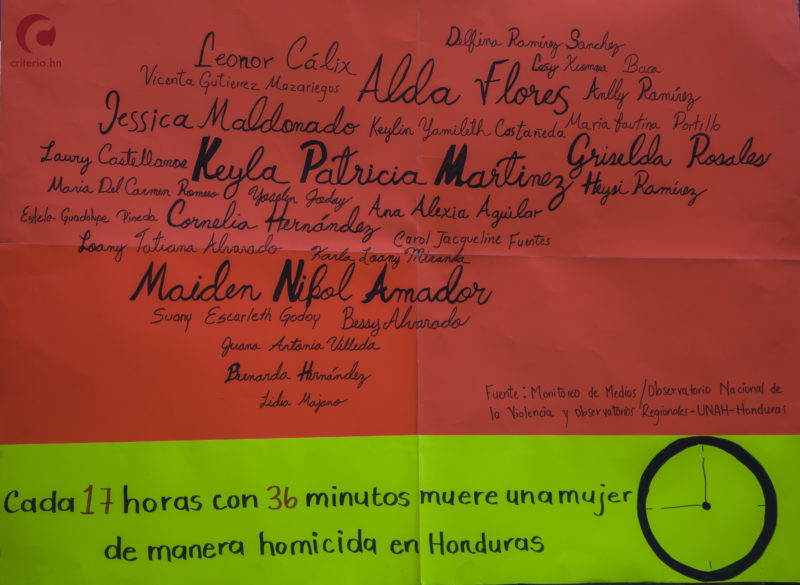 criterio.hn
Delfina Ramírez Sanchez
Leonor Cálix
Lesy Xiomara Baca
Vicenta Gutierrez Mazariegos
Alda Flores
Anlly Ramírez
Jessica Maldonado
Keylin Yamileth Castañeda
Maria fautina Portillo
Laury Castellanos
Keyla Patricia Martinez
Griselda Rosales
Maria Del Carmen Romero
Yoselyn
Heysi Ramírez
Estela Guadalupe Pineda
Cornelia Hernández
Ana Alexia Aguilar
Loany Tatiana Alvarado
Carol Jacqueline Fuentes
Karla Loany Miranda
Maiden Nikol Amador
Suany Escarleth Godoy
Bessy Alvarado
Juana Antonia Villeda
Bernarda Hernández
Lidia Majano
Fuente: Monitoreo de Medios/Observatorio Nacional de
la Violencia y Observatorios Regionales-UNAH-Honduras
Cada 17 horas con 36 minutos muere una mujer
de manera homicida en Honduras